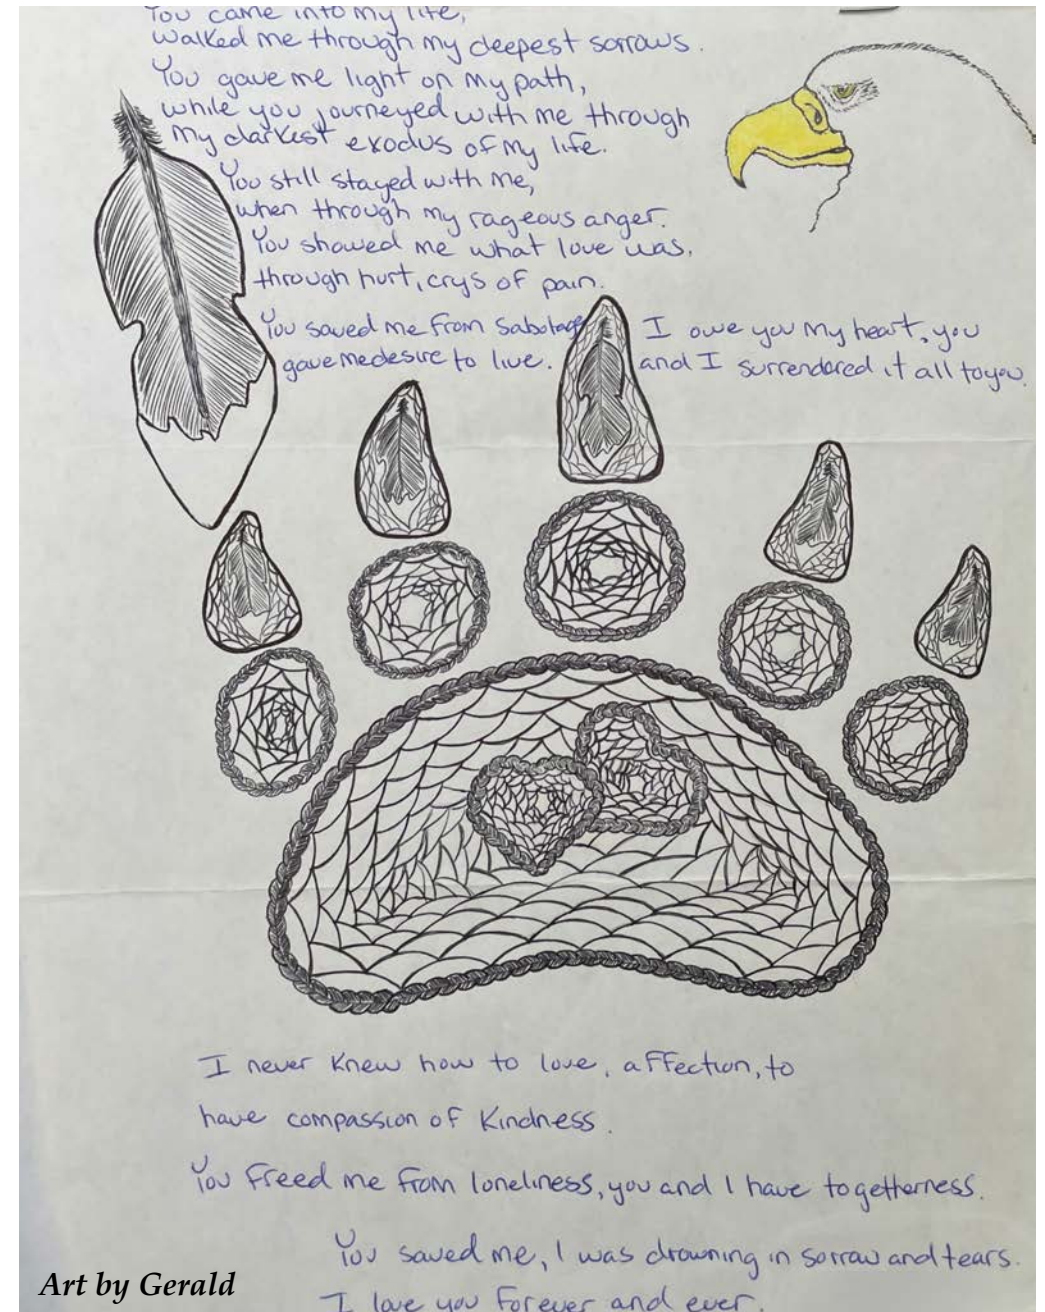 You came into my life,
walked me through my deepest sorrows.
You gave me light on my path,
while you journeyed with me through
my darkest exodus of my life.
You still stayed with me,
when through my rageous anger.
You showed me what love was,
through hurt, crys of pain.
You saved me from Sabotage
gave me desire to live.
I owe you my heart, you
and I surrendered it all to you.
I never knew how to love, affection, to
have compassion of Kindness.
You freed me from loneliness, you and I have togetherness.
You saved me, I was drowning in sorrow and tears.
I love you forever and ever.
Art by Gerald